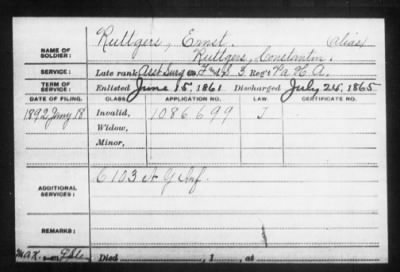 NAME OF SOLDIER: Ruttgers, Ernst. Alias
Ruttgers, Constantin.
SERVICE: Late rank Asst Surg F & S 3 Reg't Pa H. A.
TERM OF SERVICE: Enlisted June 15, 1861 Discharged July 25, 1865
DATE OF FILING. CLASS. APPLICATION NO. LAW. CERTIFICATE NO.
1892 Jany 18 Invalid, 1086699 J
Widow,
Minor,
ADDITIONAL SERVICES:
REMARKS:
Died , 1 , at